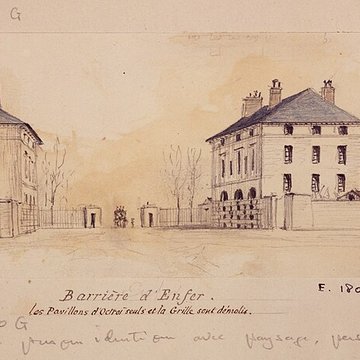 G
Barrière d'Enfer.
Les Pavillons d'Octroi seuls et la Grille sont démolis.
E. 180
G
avec paysage,